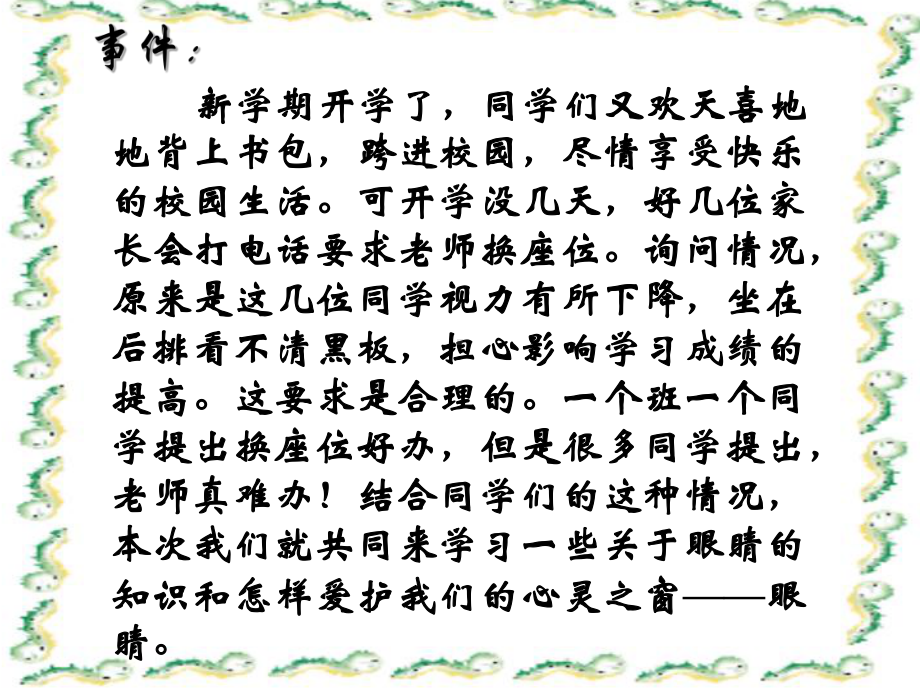 事件：
新学期开学了，同学们又欢天喜地
地背上书包，跨进校园，尽情享受快乐
的校园生活。可开学没几天，好几位家
长会打电话要求老师换座位。询问情况，
原来是这几位同学视力有所下降，坐在
后排看不清黑板，担心影响学习成绩的
提高。这要求是合理的。一个班一个同
学提出换座位好办，但是很多同学提出，
老师真难办！结合同学们的这种情况，
本次我们就共同来学习一些关于眼睛的
知识和怎样爱护我们的心灵之窗——眼
睛。